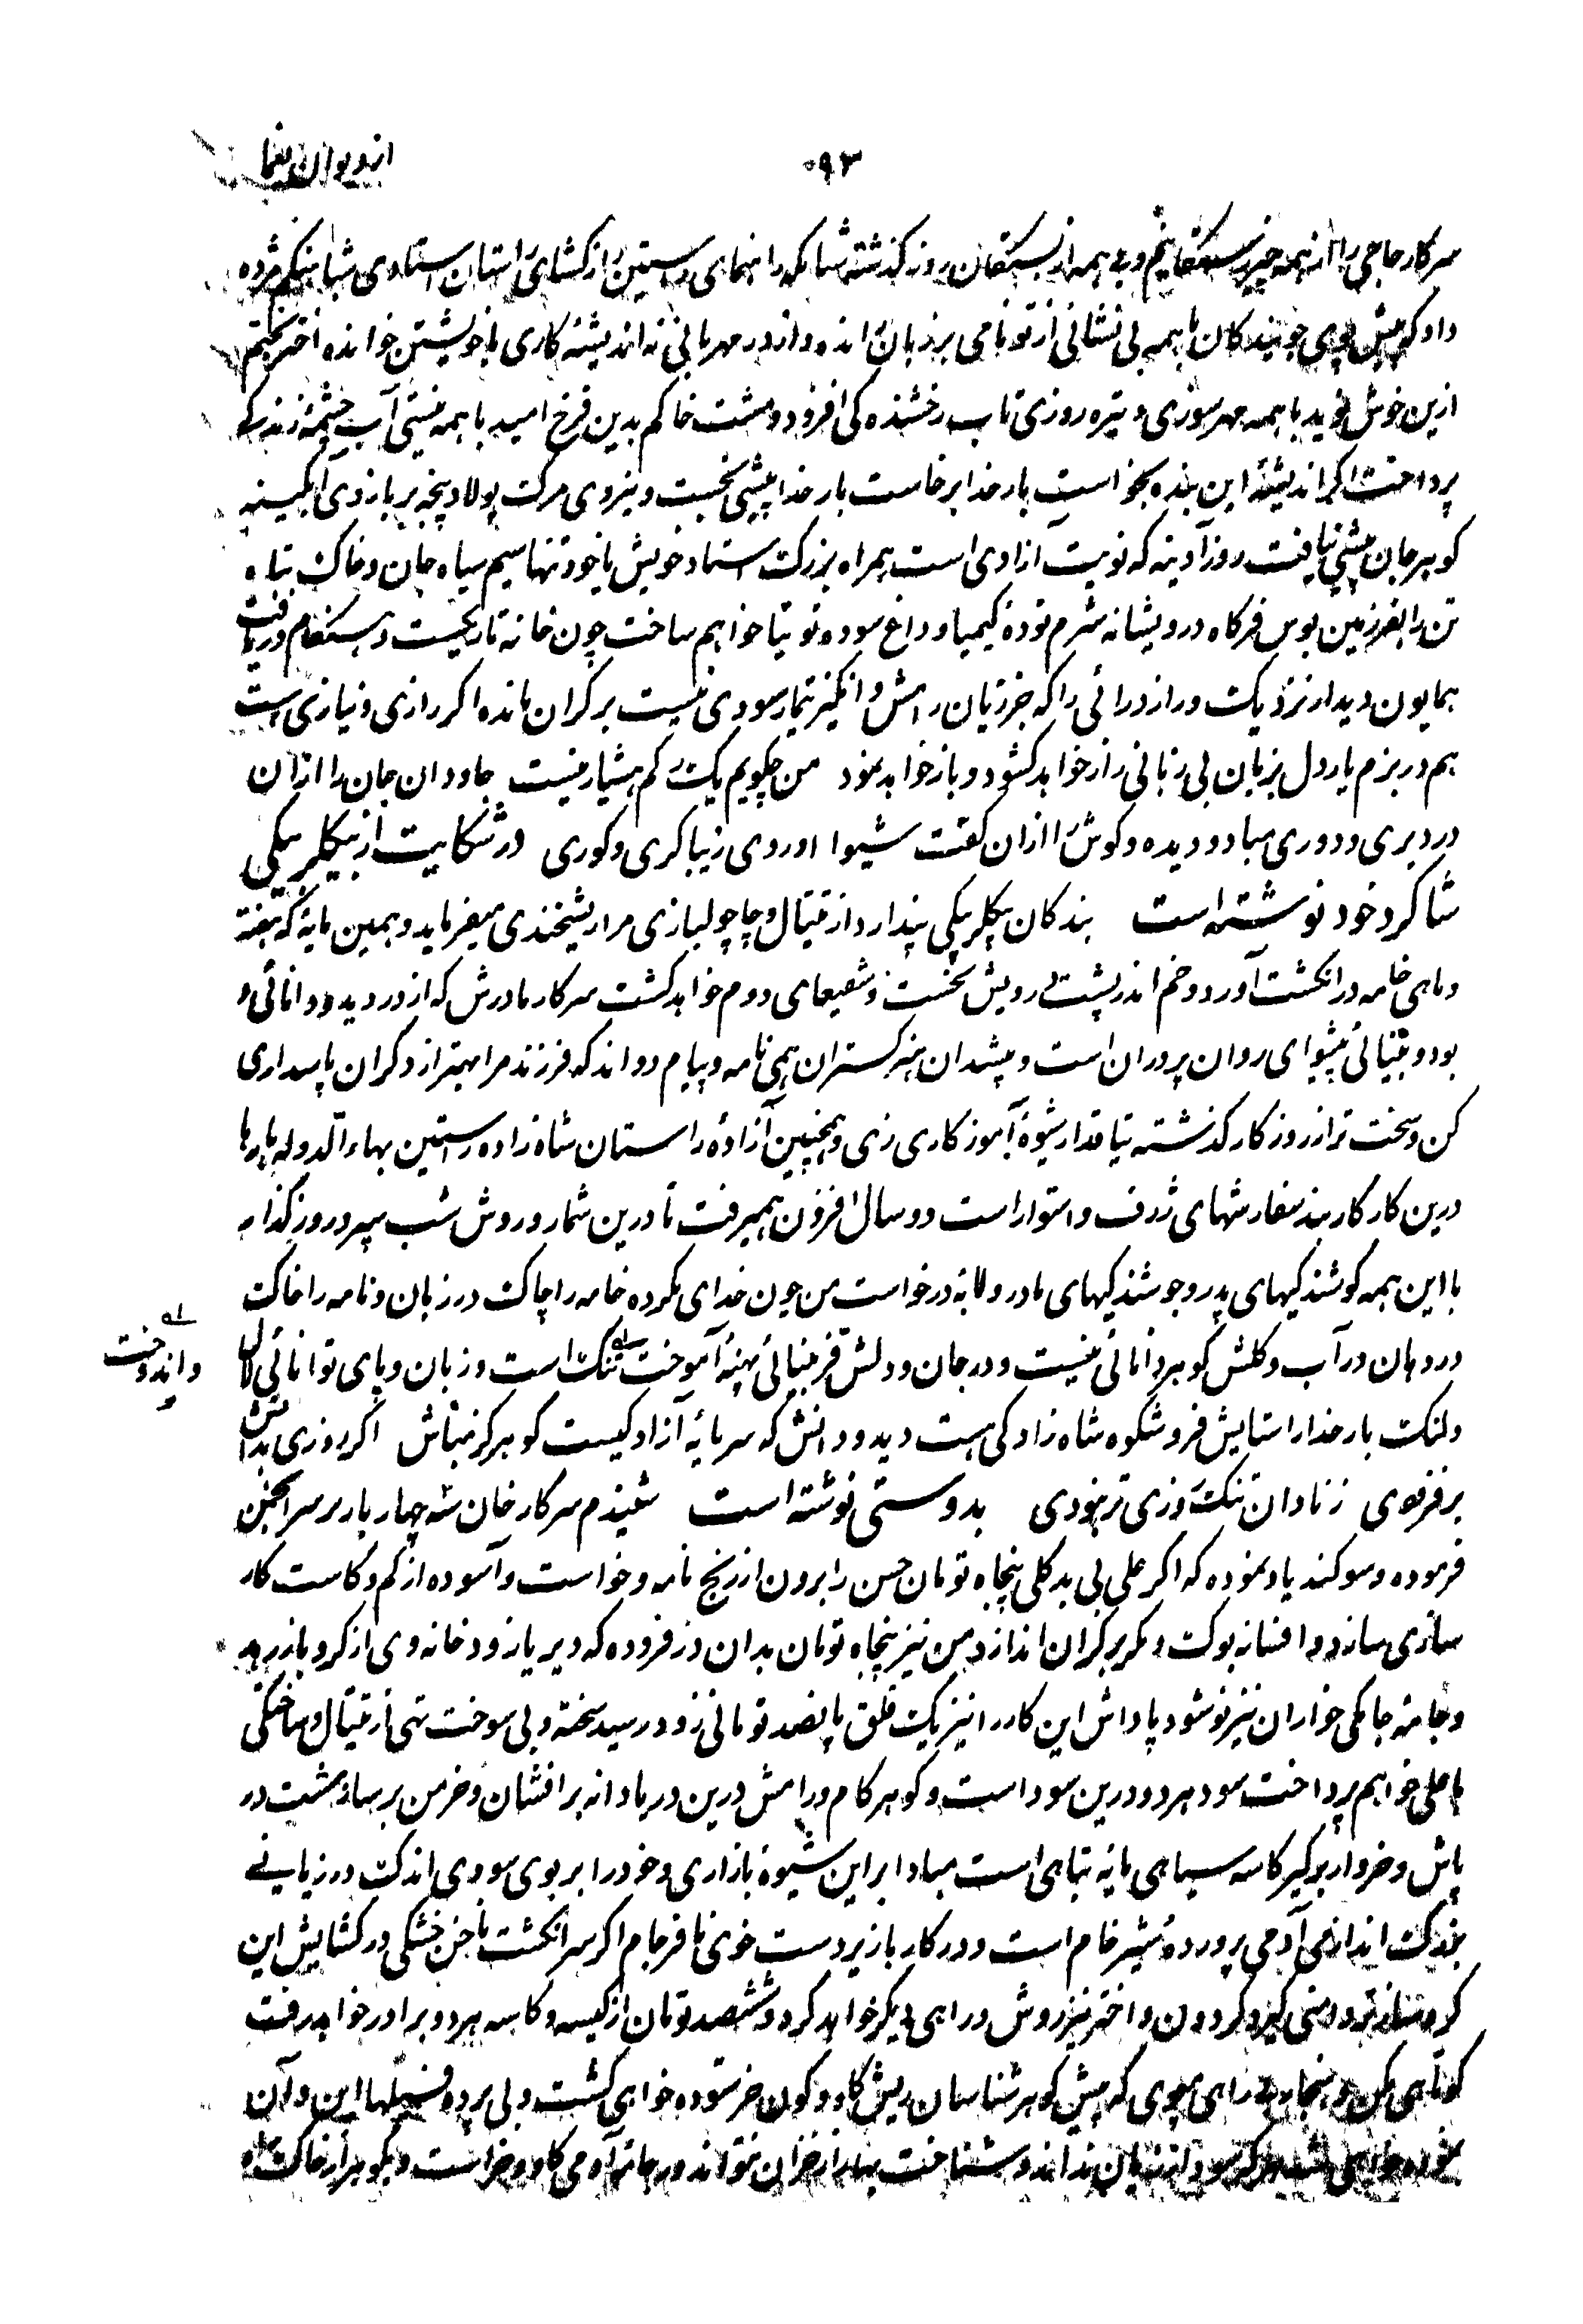 از دیوان یغما
۹۳
سرکار حاجی را از همه خبر و همه از بستگان روز گذشته شبانگه راهنمای راستین از گشای استان استادی مژده
داد که پیش جویندگان با همه بی نشانی از تو نامی بر زبان رانده و از در مهربانی نه اندیشهٔ کاری با خویشتن خوانده اخترم
ازین خوش نوید با همه مهر سوزی و تیره روزی تاب رخشنده کی افزود و مشت خاکم بدین فرخ امید با همه نیستی آب چشمهٔ زندگی
پرداخت اگر اندیشهٔ این بنده بخواست بار خدا برخاست بار خدا پیشی نجست و نیروی مرگ پولاد پنجه بر بازوی آبگینه
گوهر جان پیشی نیافت روز آدینه که نوبت آزادی است همراه بزرگ استاد خویش یا خود تنها سیم سیاه جان و خاک تباه
تن را بفر زمین بوس فرگاه درویشانه شرم تودهٔ کیمیا و داغ سوده توتیا خواهم ساخت چون خانه تاریکست و هنگام دریافت
همایون دیدار نزدیک دراز درائی را که جز زیان رامش و انگیز تیمار سودی نیست بر کران مانده اگر رازی و نیازی است
هم در بزم یار دل بزبان بی زبانی راز خواهد گشود و باز خواهد نمود من چگویم یک رگم هشیار نیست جاودان جان را ازان
در دبری و دوری مباد و دیده و گوش را ازان گفت شیوا اوروی زیبا کری و کوری در شکایت از بیگلر بیگی
شاگرد خود نوشته است بندگان بیگلر بیگی پندارد از تیتال و چاچولبازی مرا ریشخندی میفرماید و بهمین مایه که هفته
و ماهی خامه در انگشت آورد و خم اندر پشت درویش نخست و شفیعای دوم خواهد گشت سرکار مادرش که از در دید و دانائی و
بود و بینائی پیشوای روان پروران است و پیشدان هنر گستران همی نامه و پیام دواند که فرزند مرا بهتر از دگران پاسداری
کن و سخت تر از روزگار گذشته تیاقدار شیوهٔ آموزگاری زی و همچنین آزادهٔ راستان شاه زاده راستین بهاء الدوله بارها
درین کار کاربند سفارشهای ژرف و استوار است دو سال افزون همیرفت تا درین شمار و روش شب سپر و روز گذارم
با این همه کوشندگیهای پدر و جوشندگیهای مادر و لابه درخواست من چون خدای نکرده خامه را چاک در زبان و نامه را خاک
در دهان در آب و گلش گوهر دانائی نیست و در جان و دلش فر بینائی پهنهٔ آموخت تنگ است و زبان و پای توانائی لال
و اندوخت
و لنگ بار خدا را ستایش فر و شکوه شاه زادگی هست دید و دانش که سرمایهٔ آزادگیست گو هرگز مباش اگر روزی بدانش
بر فزودی ز نادان تنگ روزی تر نبودی بدوستی نوشته است شنیدم سرکار خان سه چهار بار بر سر انجمن
فرموده و سوگند یاد نموده که اگر علی بی بدگلی پنجاه تومان حسن را برون از رنج نامه و خواست و آسوده از کم و کاست کار
سازی سازد و افسانه بوک و مگر بر کران اندازد من نیز پنجاه تومان بدان در فزوده که دیر یا زود خانه وی از گرو باز رهد
و جامه جامگی خواران نیز نو شود پاداش این کار را نیز یک قلق پانصد تومانی زود رسید سخته و بی سوخت تهی از تیتال و ساختگی
با علی خواهم پرداخت سود هر دو درین سوداست و گوهر کام و رامش درین دریا دانه بر افشان و خرمن بر ساز مشت در
پاش و خروار بر گیر کاسه سیاهی مایهٔ تباهی است مبادا بر این شیوهٔ بازاری و خود را بر بوی سودی اندک در زیانے
بزرگ اندازی آدمی پرورده شیر خام است و در کار باز پردست خوی نافرجام اگر سر انگشت ناخن خشکی در گشایش این
گره ساز تر دامنی گیرد گردون و اختر نیز روش و راهی دیگر خواهد کرد و ششصد تومان از کیسه و کاسه هر دو برادر خواهد رفت
کوتاهی مکن و هنجار راهی مپوی که پیش گوهر شناسان ریش گاو و کون خر ستوده خواهی گشت و بی پرده این و آن
هر که سود از زیان نداند و شناخت بهار از خزان نتواند در جامه آدمی گاو و خر است و بگوهر از خاک راه